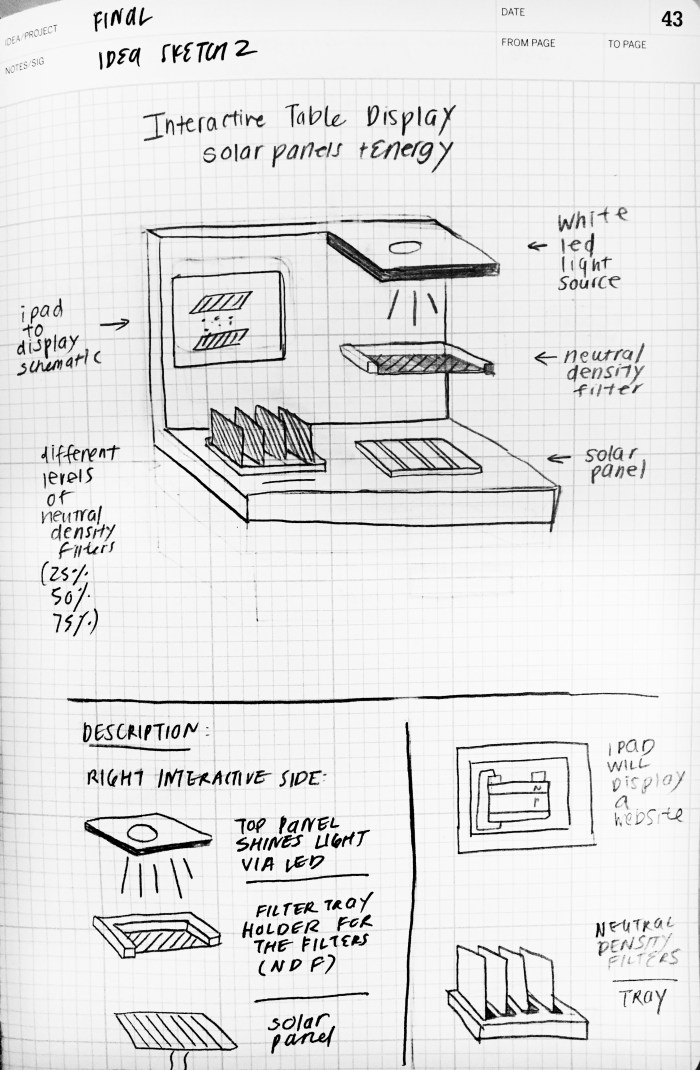 IDEA/PROJECT
FINAL
NOTES/SIG
IDEA SKETCH 2
DATE
43
FROM PAGE
TO PAGE
Interactive Table Display
solar panels + Energy
White
led
light
source
ipad
to
display
schematic
neutral
density
filter
solar
panel
different
levels
of
neutral
density
filters
(25%
50%
75%)
DESCRIPTION:
RIGHT INTERACTIVE SIDE:
TOP PANEL
SHINES LIGHT
VIA LED
FILTER TRAY
HOLDER FOR
THE FILTERS
(NDF)
solar
panel
N
P
IPAD
WILL
Display
a
website
NEUTRAL
DENSITY
FILTERS
TRAY